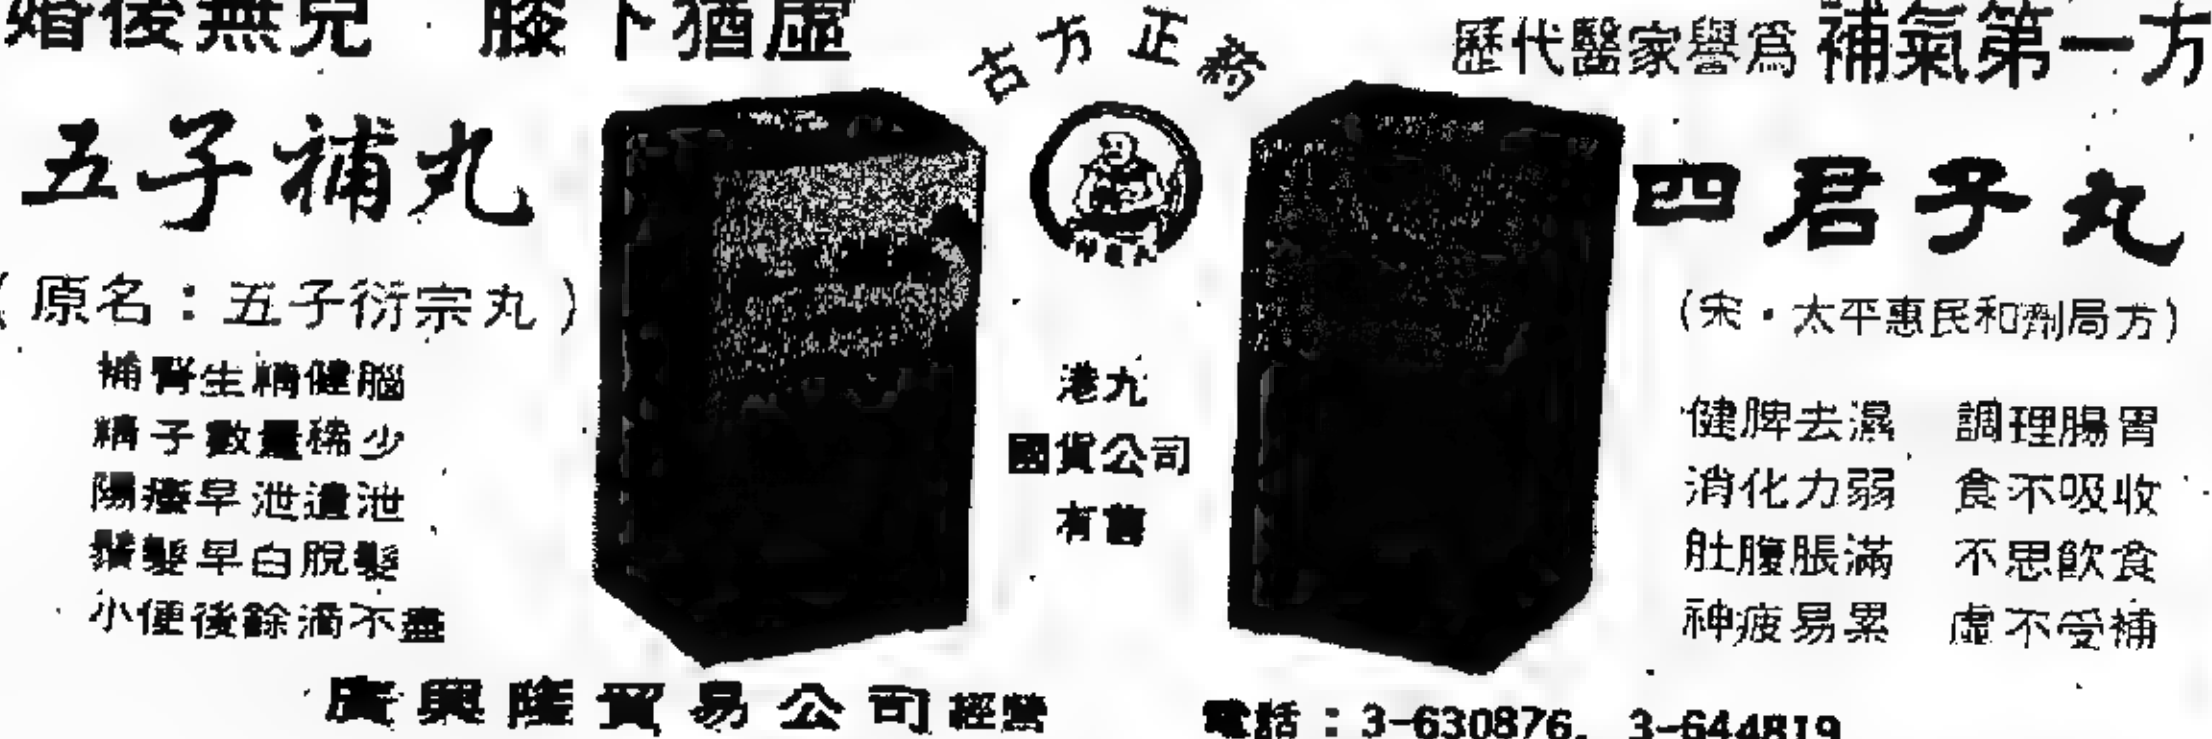 婚後無兒　膝下猶虛
五子補丸
（原名：五子衍宗丸）
補腎生精健腦
精子數量稀少
陽痿早泄遺泄
鬚髮早白脫髮
小便後餘滴不盡
古方正藥
港九
國貨公司
有售
歷代醫家譽爲補氣第一方
四君子丸
（宋・太平惠民和劑局方）
健脾去濕　調理腸胃
消化力弱　食不吸收
肚腹脹滿　不思飲食
神疲易累　虛不受補
廣興隆貿易公司經營
電話：3-630876, 3-644819